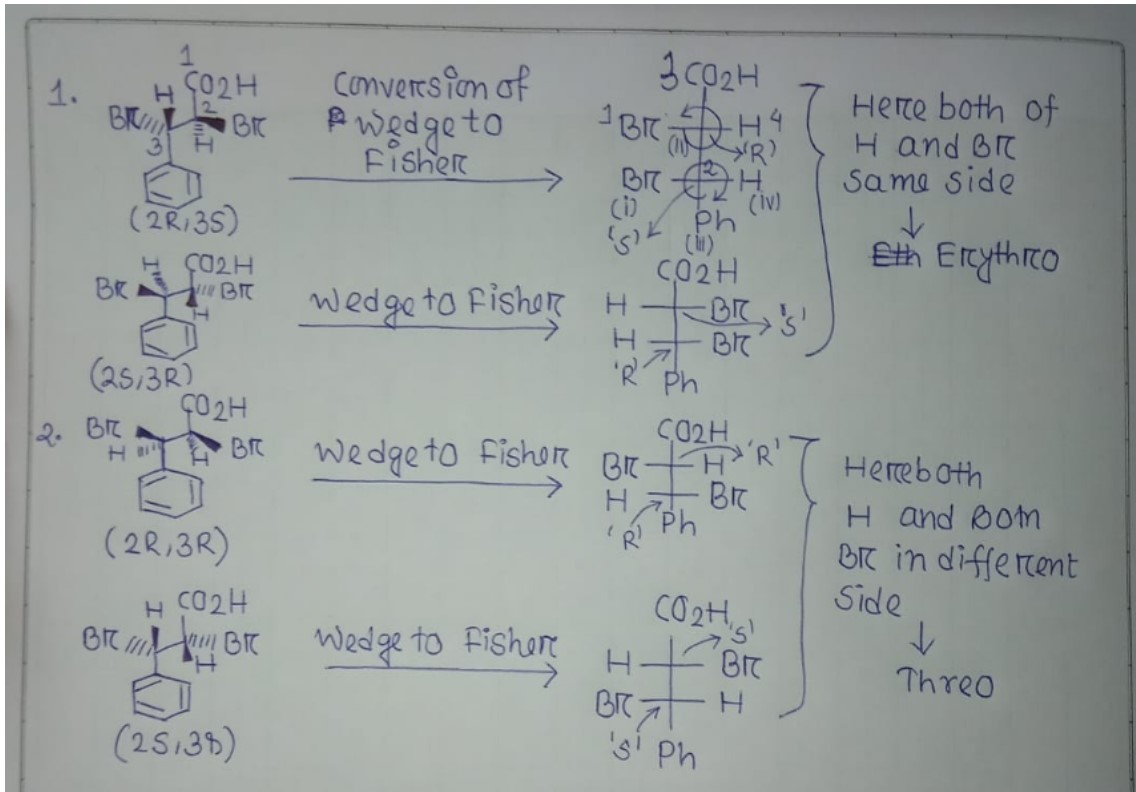 1.
1
H CO2H
Br 2 Br
3 H
(2R,3S)
Conversion of
Wedge to
Fisher
3 CO2H
1 Br H 4
(ii) 'R'
Br 2 H
(i) (iv)
'S' Ph
(iii)
Here both of
H and Br
same side
Erythro
H CO2H
Br Br
H
(2S,3R)
Wedge to Fisher
CO2H
H Br
'S'
H Br
'R'
Ph
2.
CO2H
Br Br
H H
(2R,3R)
Wedge to Fisher
CO2H
Br H 'R'
H Br
'R' Ph
Here both
H and Both
Br in different
Side
Threo
H CO2H
Br Br
H
(2S,3S)
Wedge to Fisher
CO2H 'S'
H Br
Br H
'S' Ph